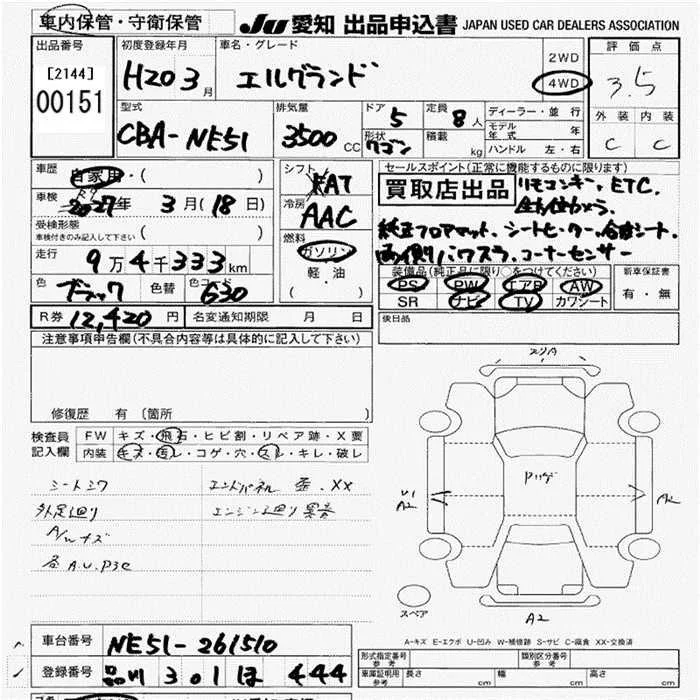 車内保管・守衛保管
JU 愛知 出品申込書 JAPAN USED CAR DEALERS ASSOCIATION
出品番号
[2144]
00151
初度登録年月
H20 3月
車名・グレード
エルグランド
2WD
4WD
評価点
3.5
外装 内装
C C
型式
CBA-NE51
排気量
3500 CC
ドア
5
形状
ワゴン
定員
8人
積載
kg
ディーラー・並行
モデル年式 年
ハンドル 左・右
車歴
自家用・( )
車検
2027年 3月(18日)
受検形態
車検付きのみ記入して下さい ( )
走行
9万4千333km
色
ブラック
色替
色コード
G30
シフト
FAT
冷房
AAC
燃料
ガソリン
軽・油
( )
セールスポイント(正常に機能するものに限ります)
買取店出品
リモコンキー、ETC、
純正フロアマット、シートヒーター、合皮シート、
両側パワスラ、コーナーセンサー
装備品(純正品に限り○をつけてください)
PS PW エアB AW
SR ナビ TV カワシート
新車保証書
有・無
R券 12,420円
名変通知期限 月 日
後日品
注意事項申告欄(不具合内容等は具体的に記入して下さい)
修復歴 有 〔箇所
検査員記入欄
FW キズ・飛石・ヒビ割・リペア跡・X要
内装 キズ・汚レ・コゲ・穴・スレ・キレ・破レ
シートシワ
外足廻り
A/Wキズ
各A.U.P3C
エンドパネル 歪・XX
エンジン廻り 異音
スリA
Pハゲ
U1
A2
A2
A2
スペア
A-キズ E-エクボ U-凹み W-補修跡 S-サビ C-腐食 XX-交換済
車台番号
NE51-261510
登録番号
品川 301 ほ 444
形式指定番号 参考
類別区分番号 参考
車庫証明用 参考
長さ cm
幅 cm
高さ cm